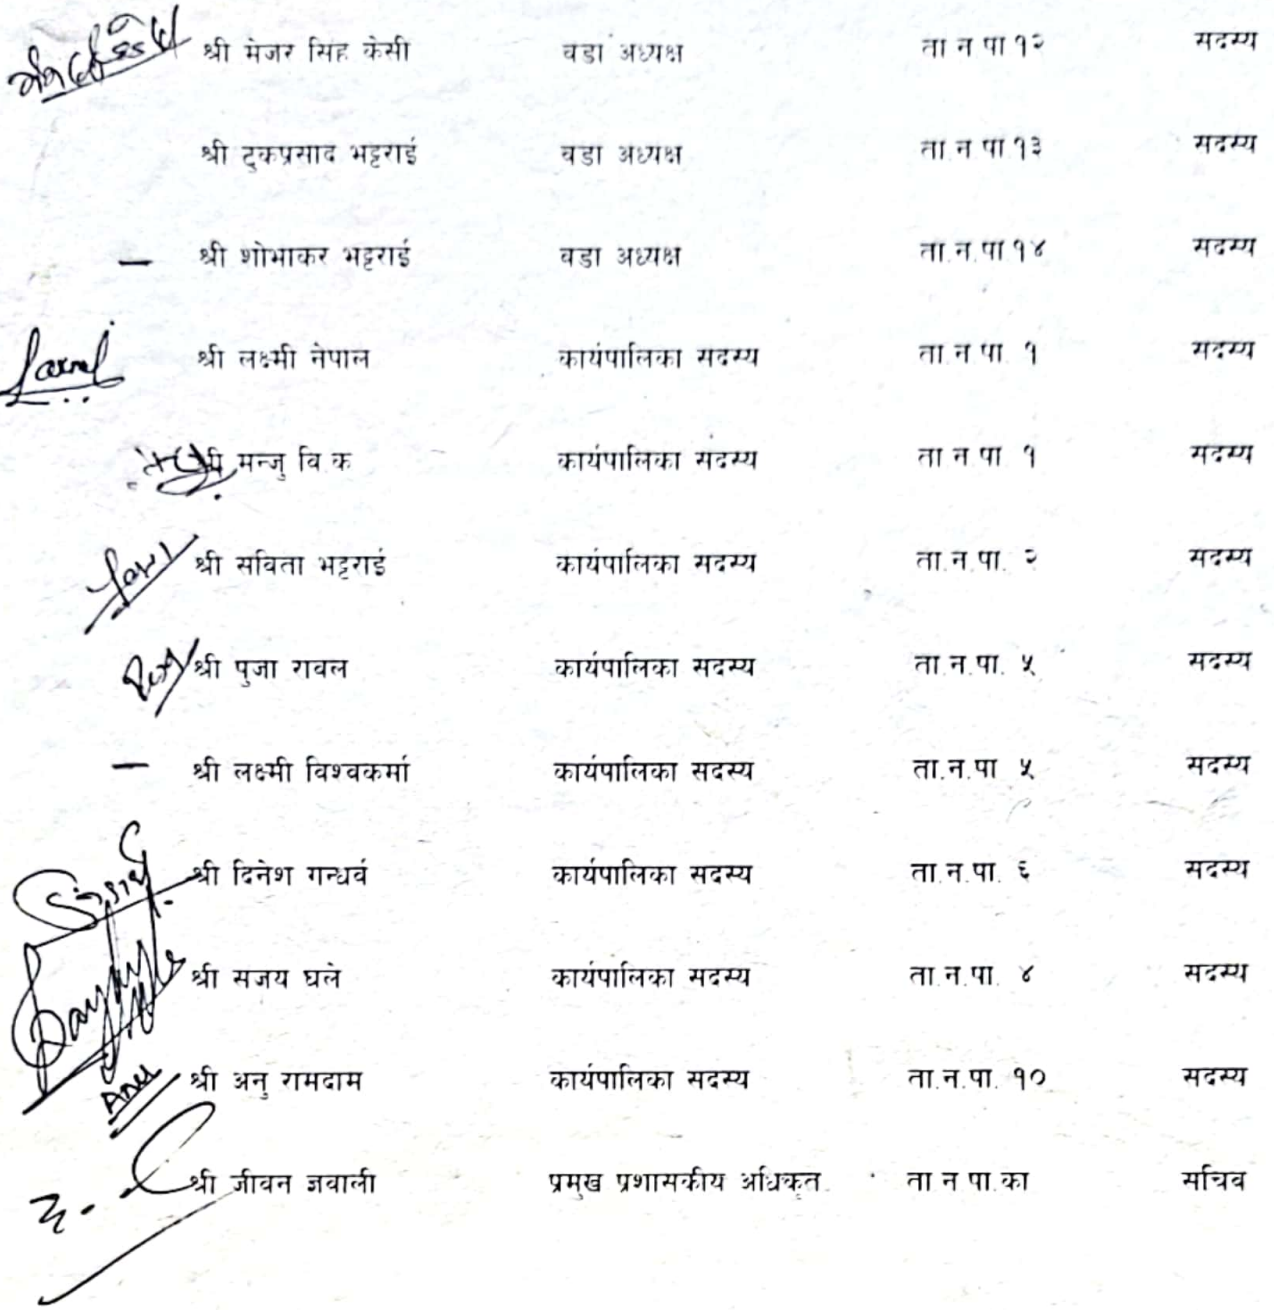 श्री मेजर सिंह केसी वडा अध्यक्ष ता न पा १२ सदस्य
श्री टुकप्रसाद भट्टराई वडा अध्यक्ष ता.न पा १३ सदस्य
– श्री शोभाकर भट्टराई वडा अध्यक्ष ता.न.पा १४ सदस्य
श्री लक्ष्मी नेपाल कार्यपालिका सदस्य ता.न.पा. १ सदस्य
श्री मन्जु वि.क कार्यपालिका सदस्य ता न पा १ सदस्य
श्री सविता भट्टराई कार्यपालिका सदस्य ता.न.पा. २ सदस्य
श्री पुजा रावल कार्यपालिका सदस्य ता.न.पा. ५ सदस्य
– श्री लक्ष्मी विश्वकर्मा कार्यपालिका सदस्य ता.न.पा ५ सदस्य
श्री दिनेश गन्धर्व कार्यपालिका सदस्य ता.न.पा. ६ सदस्य
श्री सजय घले कार्यपालिका सदस्य ता.न.पा. ४ सदस्य
Anu श्री अनु रामदाम कार्यपालिका सदस्य ता.न.पा. १० सदस्य
श्री जीवन ज्ञवाली प्रमुख प्रशासकीय अधिकृत ता न पा.का सचिव